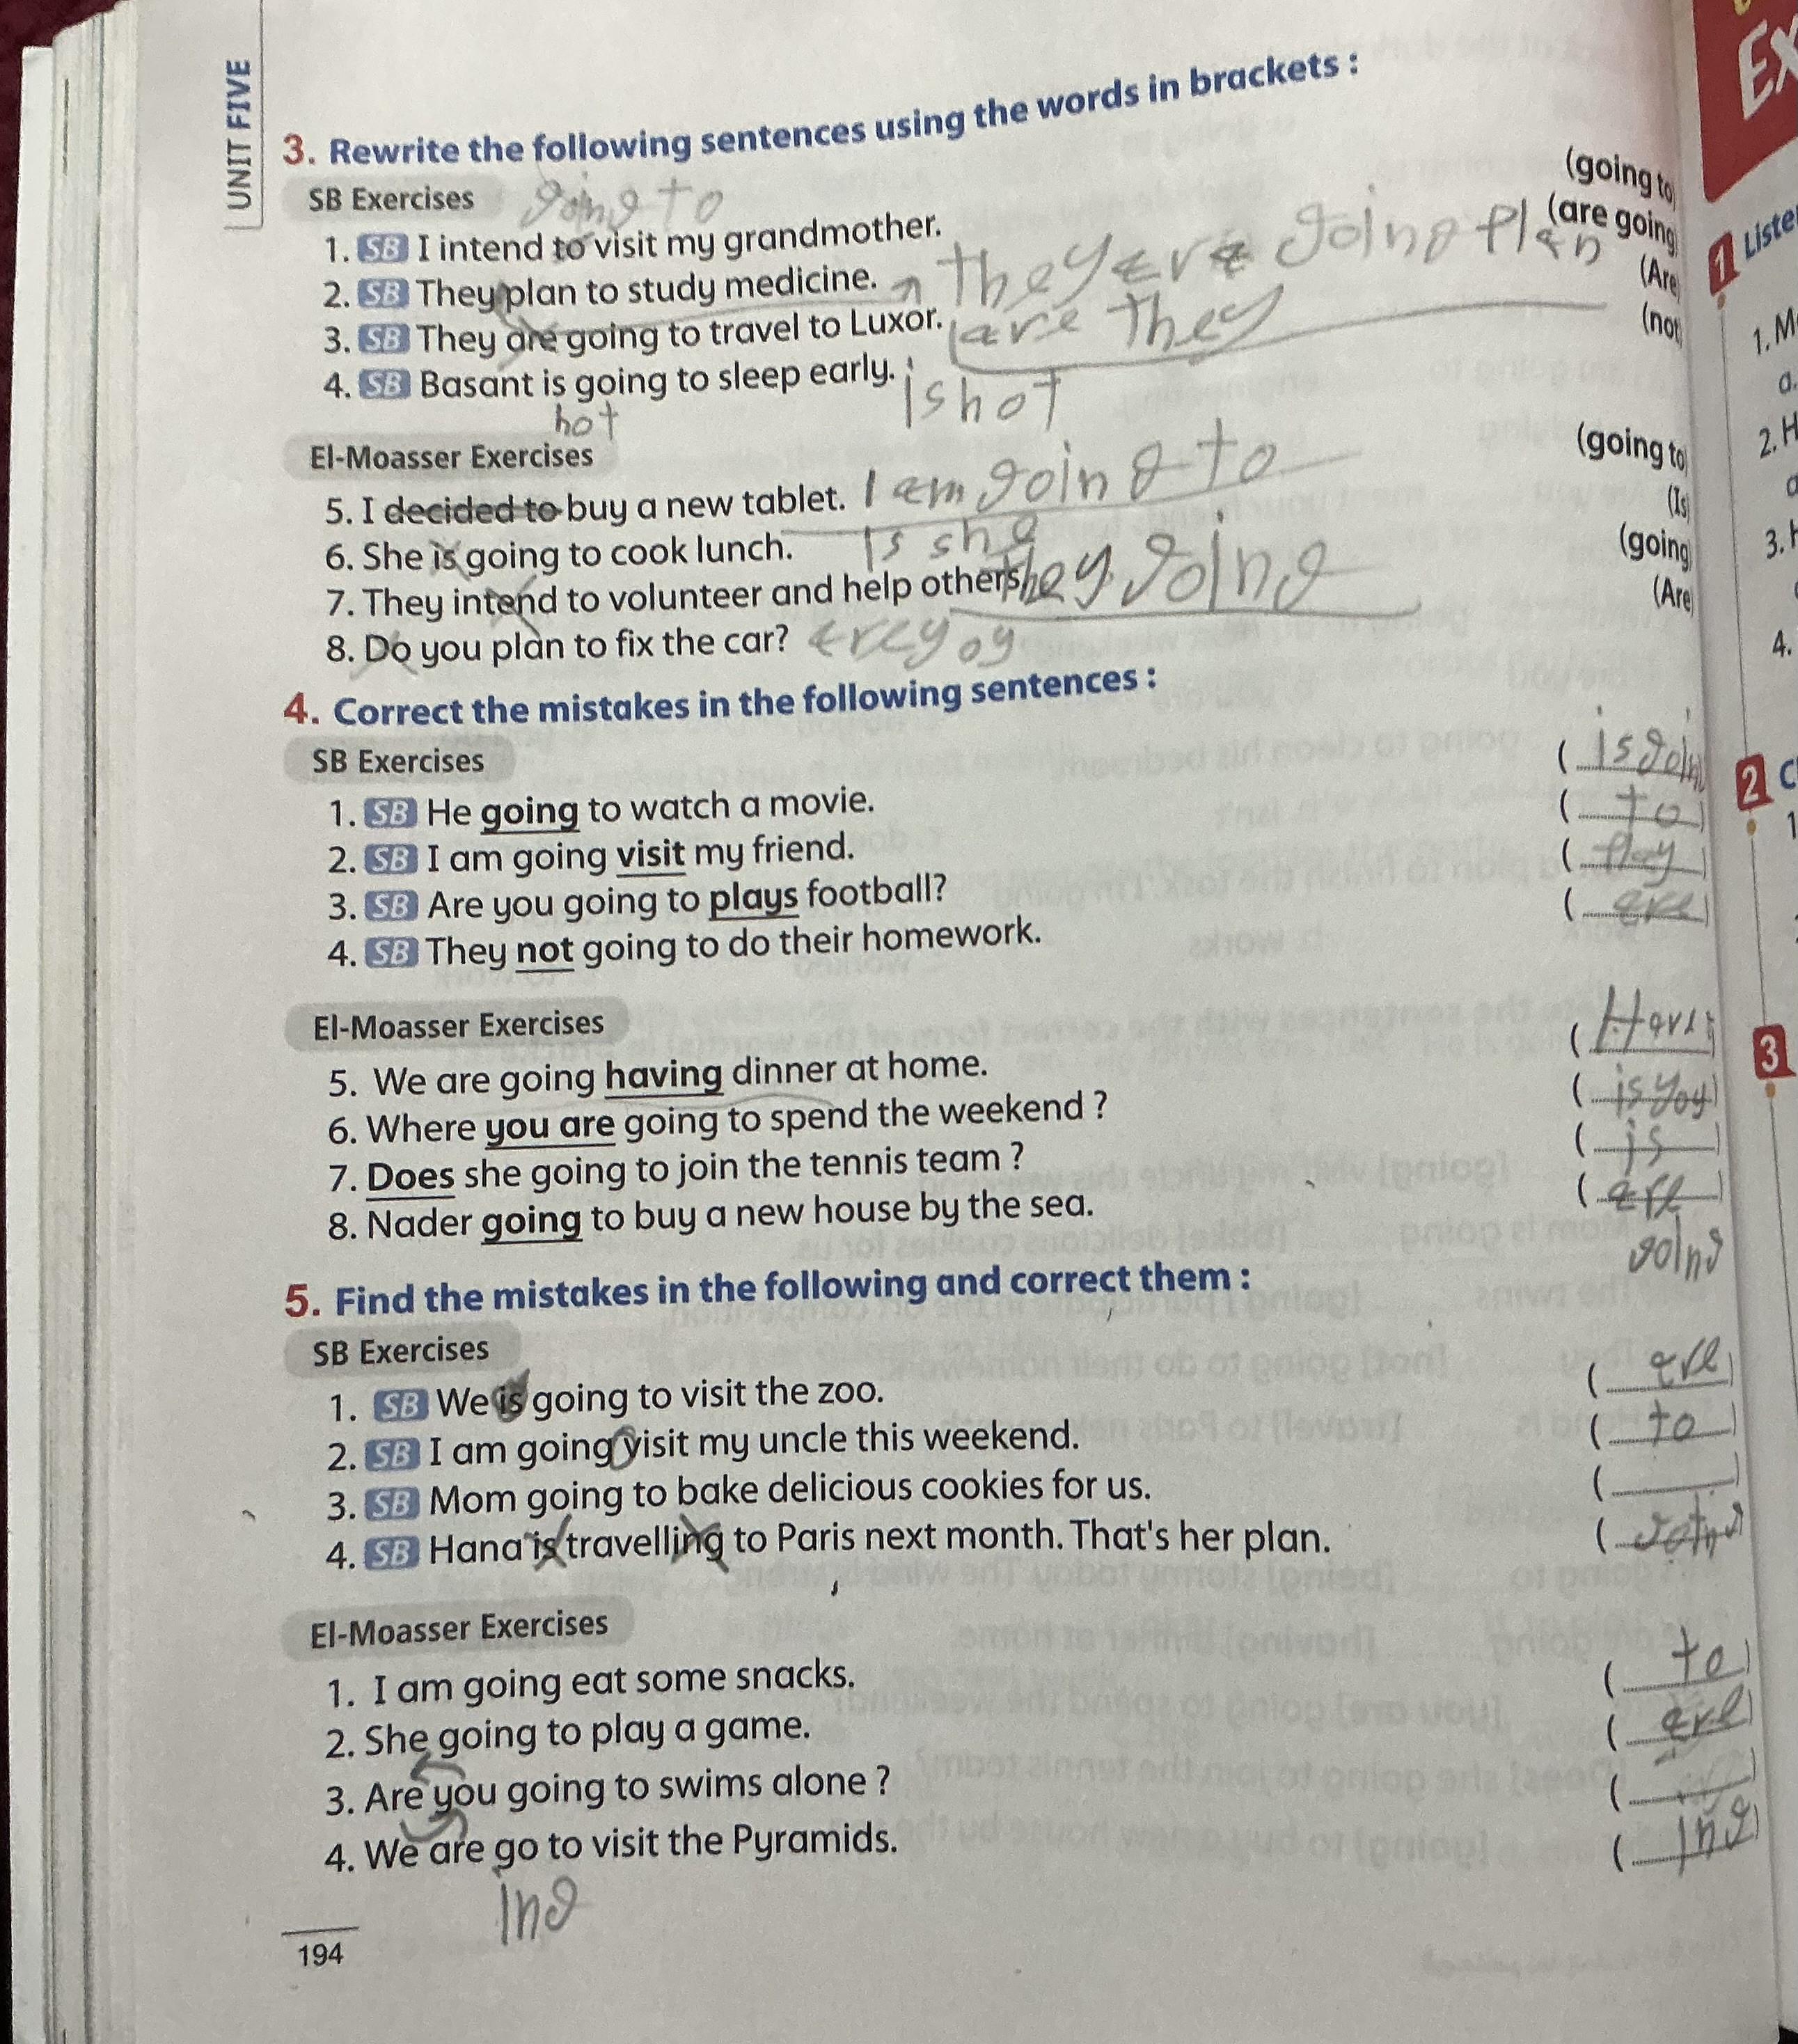 UNIT FIVE
3. Rewrite the following sentences using the words in brackets :
SB Exercises
going to
1. SB I intend to visit my grandmother. (going to
2. SB They plan to study medicine. They are going plan (are going
3. SB They are going to travel to Luxor. are They (Are
4. SB Basant is going to sleep early. is hot (not
hot
El-Moasser Exercises
5. I decided to buy a new tablet. I am going to (going to
6. She is going to cook lunch. Is she (Is
7. They intend to volunteer and help others. hey going (going
8. Do you plan to fix the car? (Are
4. Correct the mistakes in the following sentences :
SB Exercises
1. SB He going to watch a movie. ( is goin
2. SB I am going visit my friend. ( to )
3. SB Are you going to plays football? ( Play )
4. SB They not going to do their homework. ( are )
El-Moasser Exercises
5. We are going having dinner at home. (
6. Where you are going to spend the weekend ? ( is yoy )
7. Does she going to join the tennis team ? ( is )
8. Nader going to buy a new house by the sea. ( are )
going
5. Find the mistakes in the following and correct them :
SB Exercises
1. SB We is going to visit the zoo. ( are )
2. SB I am going visit my uncle this weekend. ( to )
3. SB Mom going to bake delicious cookies for us. ( )
4. SB Hana is travelling to Paris next month. That's her plan. (
El-Moasser Exercises
1. I am going eat some snacks. ( to )
2. She going to play a game. ( are )
3. Are you going to swims alone ? ( )
4. We are go to visit the Pyramids. ( ing )
ing
194
Ex
1 Liste
1. M
a.
2. H
a
3. H
4.
2 C
1
3